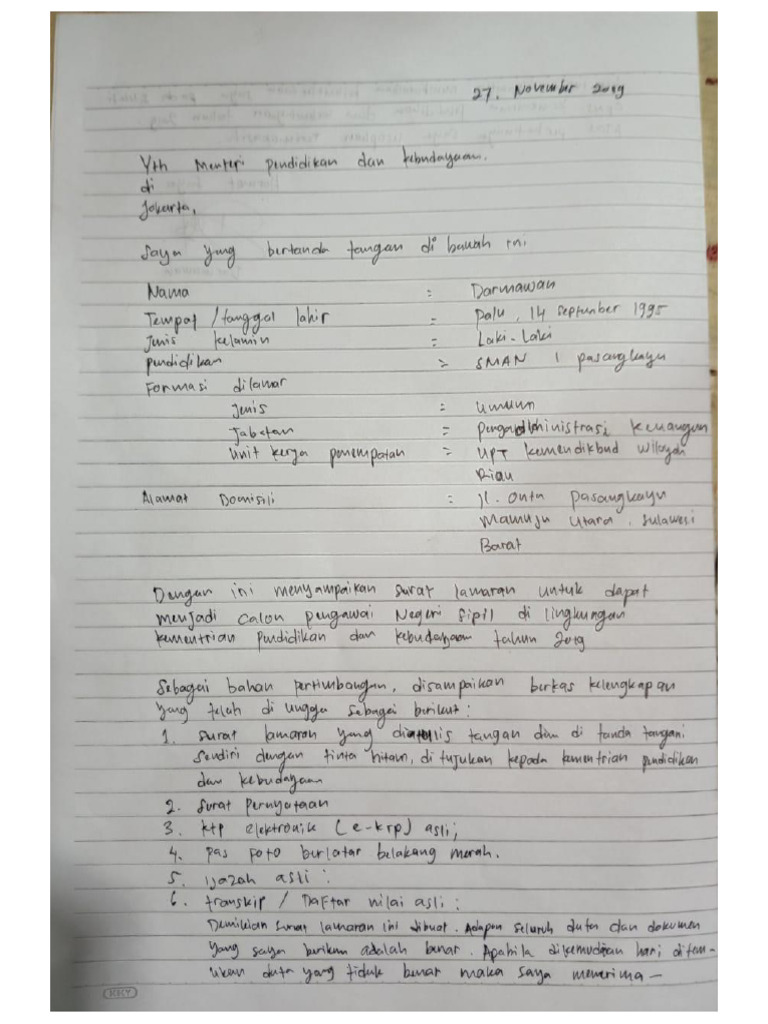 27. November 2019
Yth Menteri pendidikan dan kebudayaan.
di
Jakarta,
Saya yang bertanda tangan di bawah ini
Nama : Darmawan
Tempat / tanggal lahir = Palu, 14 September 1995
Jenis kelamin = Laki-Laki
pendidikan = SMAN 1 pasangkayu
Formasi dilamar
Jenis = umum
Jabatan = pengadministrasi keuangan
unit kerja penempatan = UPT kemendikbud wilayah
Riau
Alamat Domisili = Jl. Onta pasangkayu
Mamuju Utara, Sulawesi
Barat
Dengan ini menyampaikan surat lamaran untuk dapat
menjadi calon pengawai Negeri Sipil di lingkungan
kementrian pendidikan dan kebudayaan tahun 2019
Sebagai bahan pertimbangan, disampaikan berkas kelengkapan
yang telah di unggu sebagai berikut :
1. Surat lamaran yang ditulis tangan dan di tanda tangani
Sendiri dengan tinta hitam, di tujukan kepada kementrian pendidikan
dan kebudayaan
2. Surat Pernyataan
3. ktp elektronik (e-ktp) asli;
4. pas poto berlatar belakang merah.
5. ijazah asli :
6. transkip / Daftar nilai asli :
Demikian surat lamaran ini dibuat. Adapun seluruh data dan dokumen
yang saya berikan adalah benar. Apabila dikemudian hari ditem-
ukan data yang tidak benar maka saya menerima -